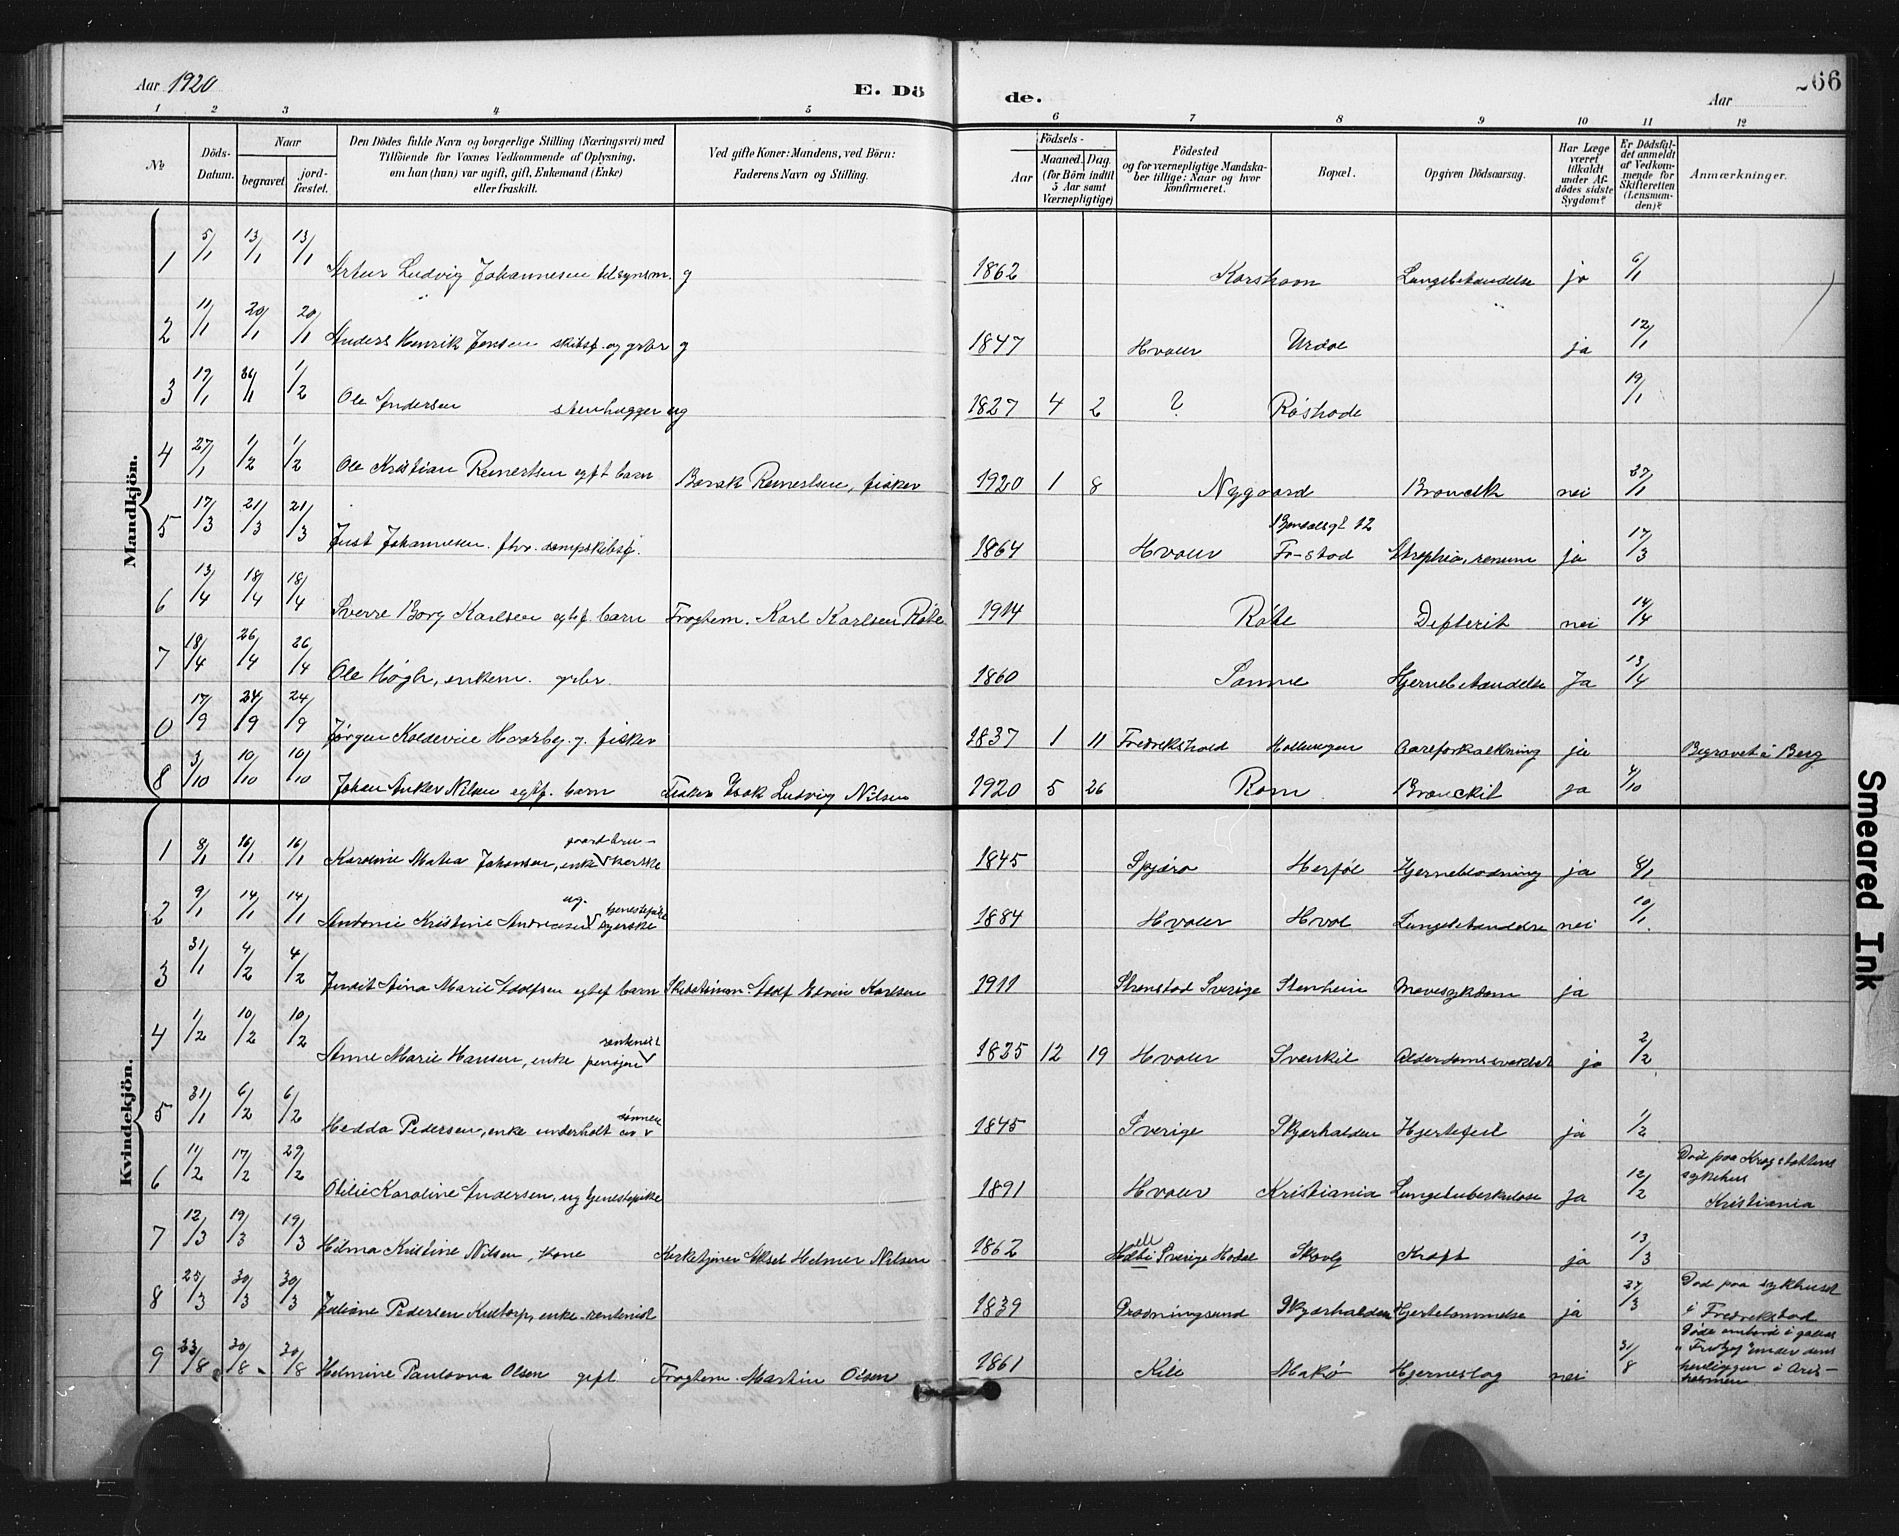 Aar 1920
E. Dö
de.
Aar
266
1 2 3 4 5 6 7 8 9 10 11 12
№
Döds-
Datum.
Naar
begravet
jord-
fæstet.
Den Dödes fulde Navn og borgerlige Stilling (Næringsvei) med
Tilföiende for Voxnes Vedkommende af Oplysning,
om han (hun) var ugift, gift, Enkemand (Enke)
eller fraskilt.
Ved gifte Koner: Mandens, ved Börn:
Faderens Navn og Stilling.
Födsels-
Aar
Maaned. Dag.
(for Börn indtil
5 Aar samt
Værnepligtige)
Födested
og for værnepligtige Mandska-
ber tillige: Naar og hvor
konfirmeret.
Bopæl.
Opgiven Dödsaarsag.
Har Læge
været
tilkaldt
under Af-
dödes sidste
Sygdom?
Er Dödsfal-
det anmeldt
af Vedkom-
mende for
Skifteretten
(Lensman-
den)?
Anmærkninger.
Mandkjön.
1 5/1 13/1 13/1 Artur Ludvig Johannesen tilsynsm. g 1862 Korshavn Lungebetændelse ja 6/1
2 11/1 20/1 20/1 Anders Henrik Jensen skibsf. og grbr g 1847 Hvaler Urdal ja 12/1
3 17/1 26/1 1/2 Ole Andersen stenhugger ug 1827 4 2 ? Røshode 19/1
4 27/1 1/2 1/2 Ole Kristian Reinertsen egft barn Barak Reinertsen, fisker 1920 1 8 Nygaard nei 27/1
5 17/3 21/3 21/3 Just Johannesen. fhv. dampskibsf. 1864 Hvaler 12 Fr-stad ja 17/3
6 13/4 18/4 18/4 Sverre Borg Karlsen egtef. barn Fraghem. Karl Karlsen Røbe 1914 Røbe Difterit nei 14/4
7 18/4 26/4 26/4 Ole Høgh, enkem. grbr. 1860 Sanne Hjernebetændelse Ja 13/4
0 17/9 24/9 24/9 Jørgen g. fisker 1837 1 11 Fredrikshald Aareforkalkning ja Begravet i Berg
8 3/10 10/10 10/10 Johan Anker Nilsen egtf. barn Fisker Isak Ludvig Nilsen 1920 5 26 Rom Bronckit ja 4/10
Kvindekjön.
1 8/1 16/1 16/1 Karoline Matea Johansen, enke gaardbru-kerske 1845 Spjærø Herføl Hjerneblødning ja 8/1
2 9/1 14/1 14/1 Antonie Kristine Andreasen ug. tjenestepike syerske 1884 Hvaler Hvol Lungebetændelse nei 10/1
3 31/1 4/2 4/2 Judit Aina Marie Adolfsen egtef barn Adolf Edvin Karlsen 1911 Strømstad Sverige Stenheim Mavesykdom ja
4 1/2 10/2 10/2 Anne Marie Hansen, enke 1835 12 19 Hvaler Svenkil Alderdomssvakhet ja 2/2
5 31/1 6/2 6/2 Hedda Pedersen, enke underholt av sønnen 1845 Sverige Skjærhalden Hjertefeil ja 1/2
6 11/2 17/2 29/2 Otilie Karoline Andersen, ug tjenestepike 1891 Hvaler Kristiania Lungetuberkulose ja 12/2 Død paa Krogstøttens
sykehus
Kristiania
7 12/3 19/3 19/3 Hilma Kristine Nilsen, kone Kirketjener Aksel Helmer Nilsen 1862 Sverige Kraft ja 13/3
8 25/3 30/3 30/3 Juliane Pedersen enke rentenist 1839 Skjærhalden Hjertelammelse ja 27/3 Død paa sykhuset
i Fredrikstad
9 23/8 30/8 30/8 Helmine Paulovna Olsen gift Fraghem. Martin Olsen 1861 Kile Makø Hjerneslag nei 31/8 Døde ombord i
under dens
henliggen i
Smeared Ink